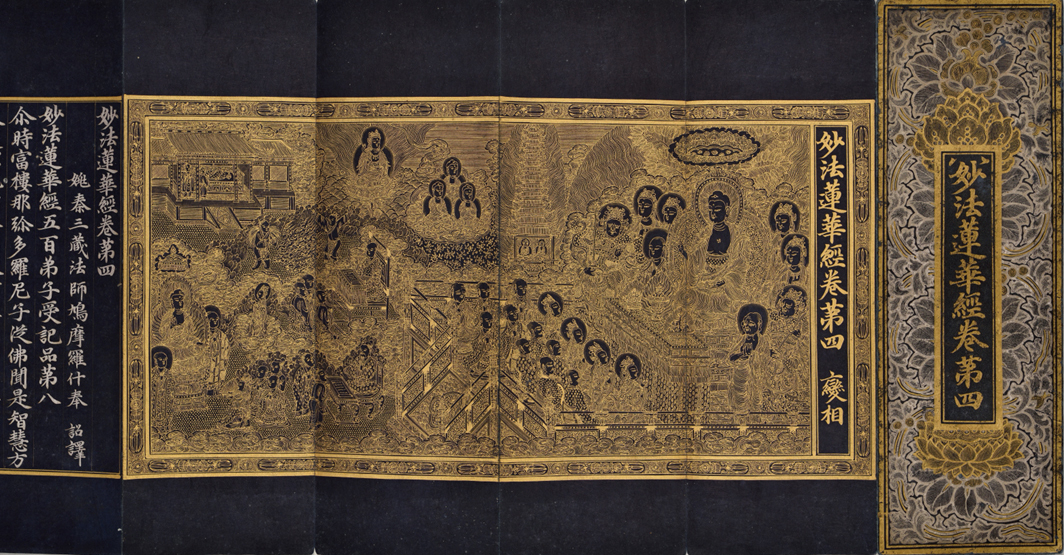 妙法蓮華經卷第四
妙法蓮華經卷第四 變相
妙法蓮華經卷第四
姚秦三藏法師鳩摩羅什奉 詔譯
妙法蓮華經五百弟子受記品第八
尒時富樓那弥多羅尼子從佛聞是智慧方